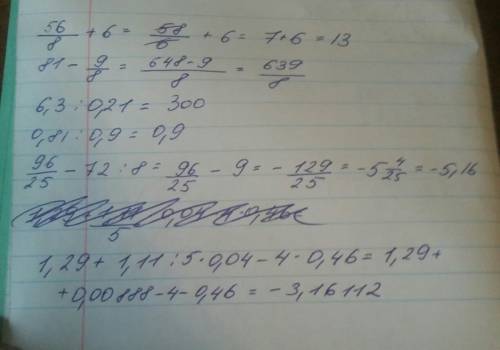 56/8 + 6 = 58/8 + 6 = 7+6 = 13
81 - 9/8 = 648-9/8 = 639/8
6,3 : 0,21 = 300
0,81 : 0,9 = 0,9
96/25 - 72 : 8 = 96/25 - 9 = - 129/25 = -5 4/25 = -5,16
5
1,29 + 1,11 : 5 · 0,04 - 4 · 0,46 = 1,29 +
+ 0,00888 - 4 - 0,46 = - 3,16112